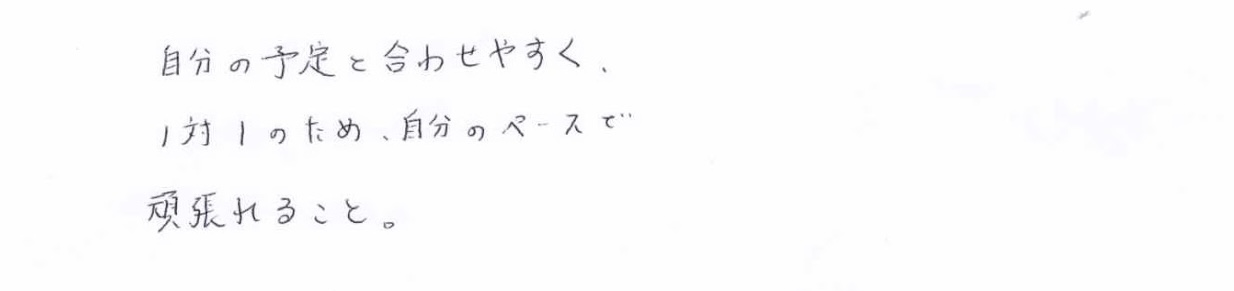 自分の予定と合わせやすく、
1対1のため、自分のペースで
頑張れること。